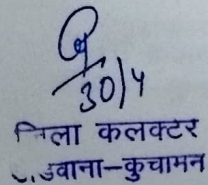 30/4
जिला कलक्टर
डीडवाना-कुचामन